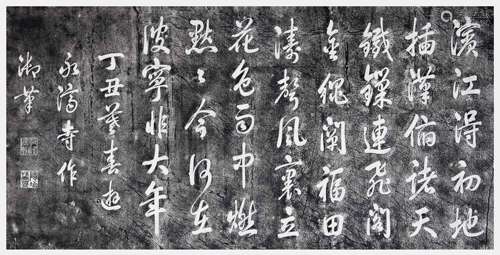 濱江得初地
插漢俯諸天
鐵鏁連飛閣
金繩闢福田
濤聲風裏立
花色雨中燃
默〻今何在
波寧非大年
丁丑暮春遊
永濟寺作
御筆